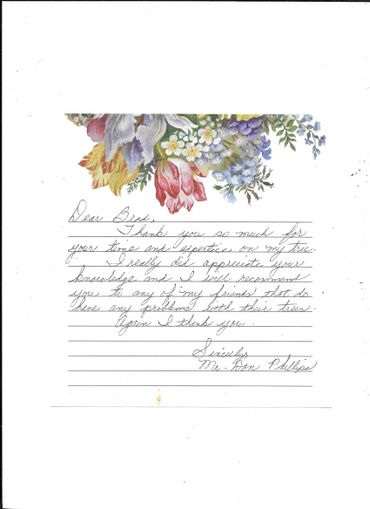 Dear Brad,
Thank you so much for
your time and expertise on my tree.
I really did appreciate your
knowledge and I will recommend
you to any of my friends that do
have any problems with their trees.
Again I thank you.
Sincerely,
Mr. Don Phillips